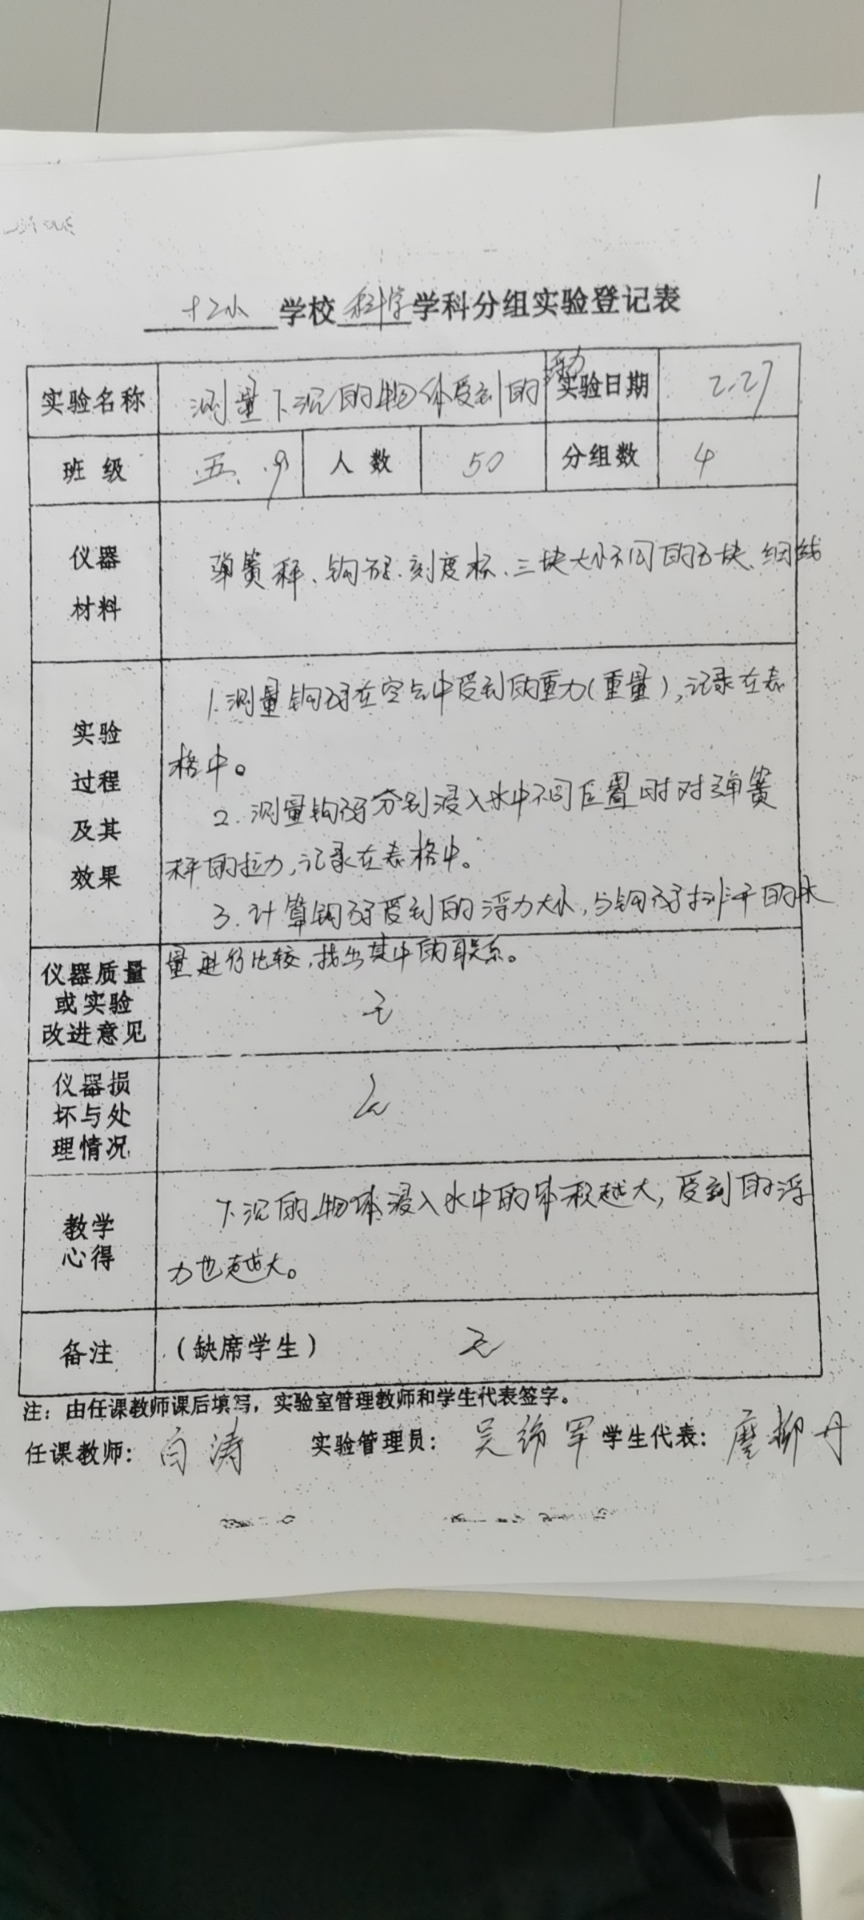 1
十二小 学校 科学 学科分组实验登记表
实验名称 测量下沉的物体受到的浮力 实验日期 2.27
班级 五.9 人数 50 分组数 4
仪器材料 弹簧秤、钩码、刻度杯、三块大小不同的石块、细线
实验过程及其效果
1.测量钩码在空气中受到的重力(重量),记录在表
格中。
2.测量钩码分别浸入水中不同位置时对弹簧
秤的拉力,记录在表格中。
3.计算钩码受到的浮力大小,与钩码排开的水
量进行比较,找出其中的联系。
仪器质量或实验改进意见 无
仪器损坏与处理情况 无
教学心得
下沉的物体浸入水中的体积越大,受到的浮
力也越大。
备注 (缺席学生) 无
注:由任课教师课后填写,实验室管理教师和学生代表签字。
任课教师: 白涛 实验管理员: 吴 军 学生代表: 柳丹